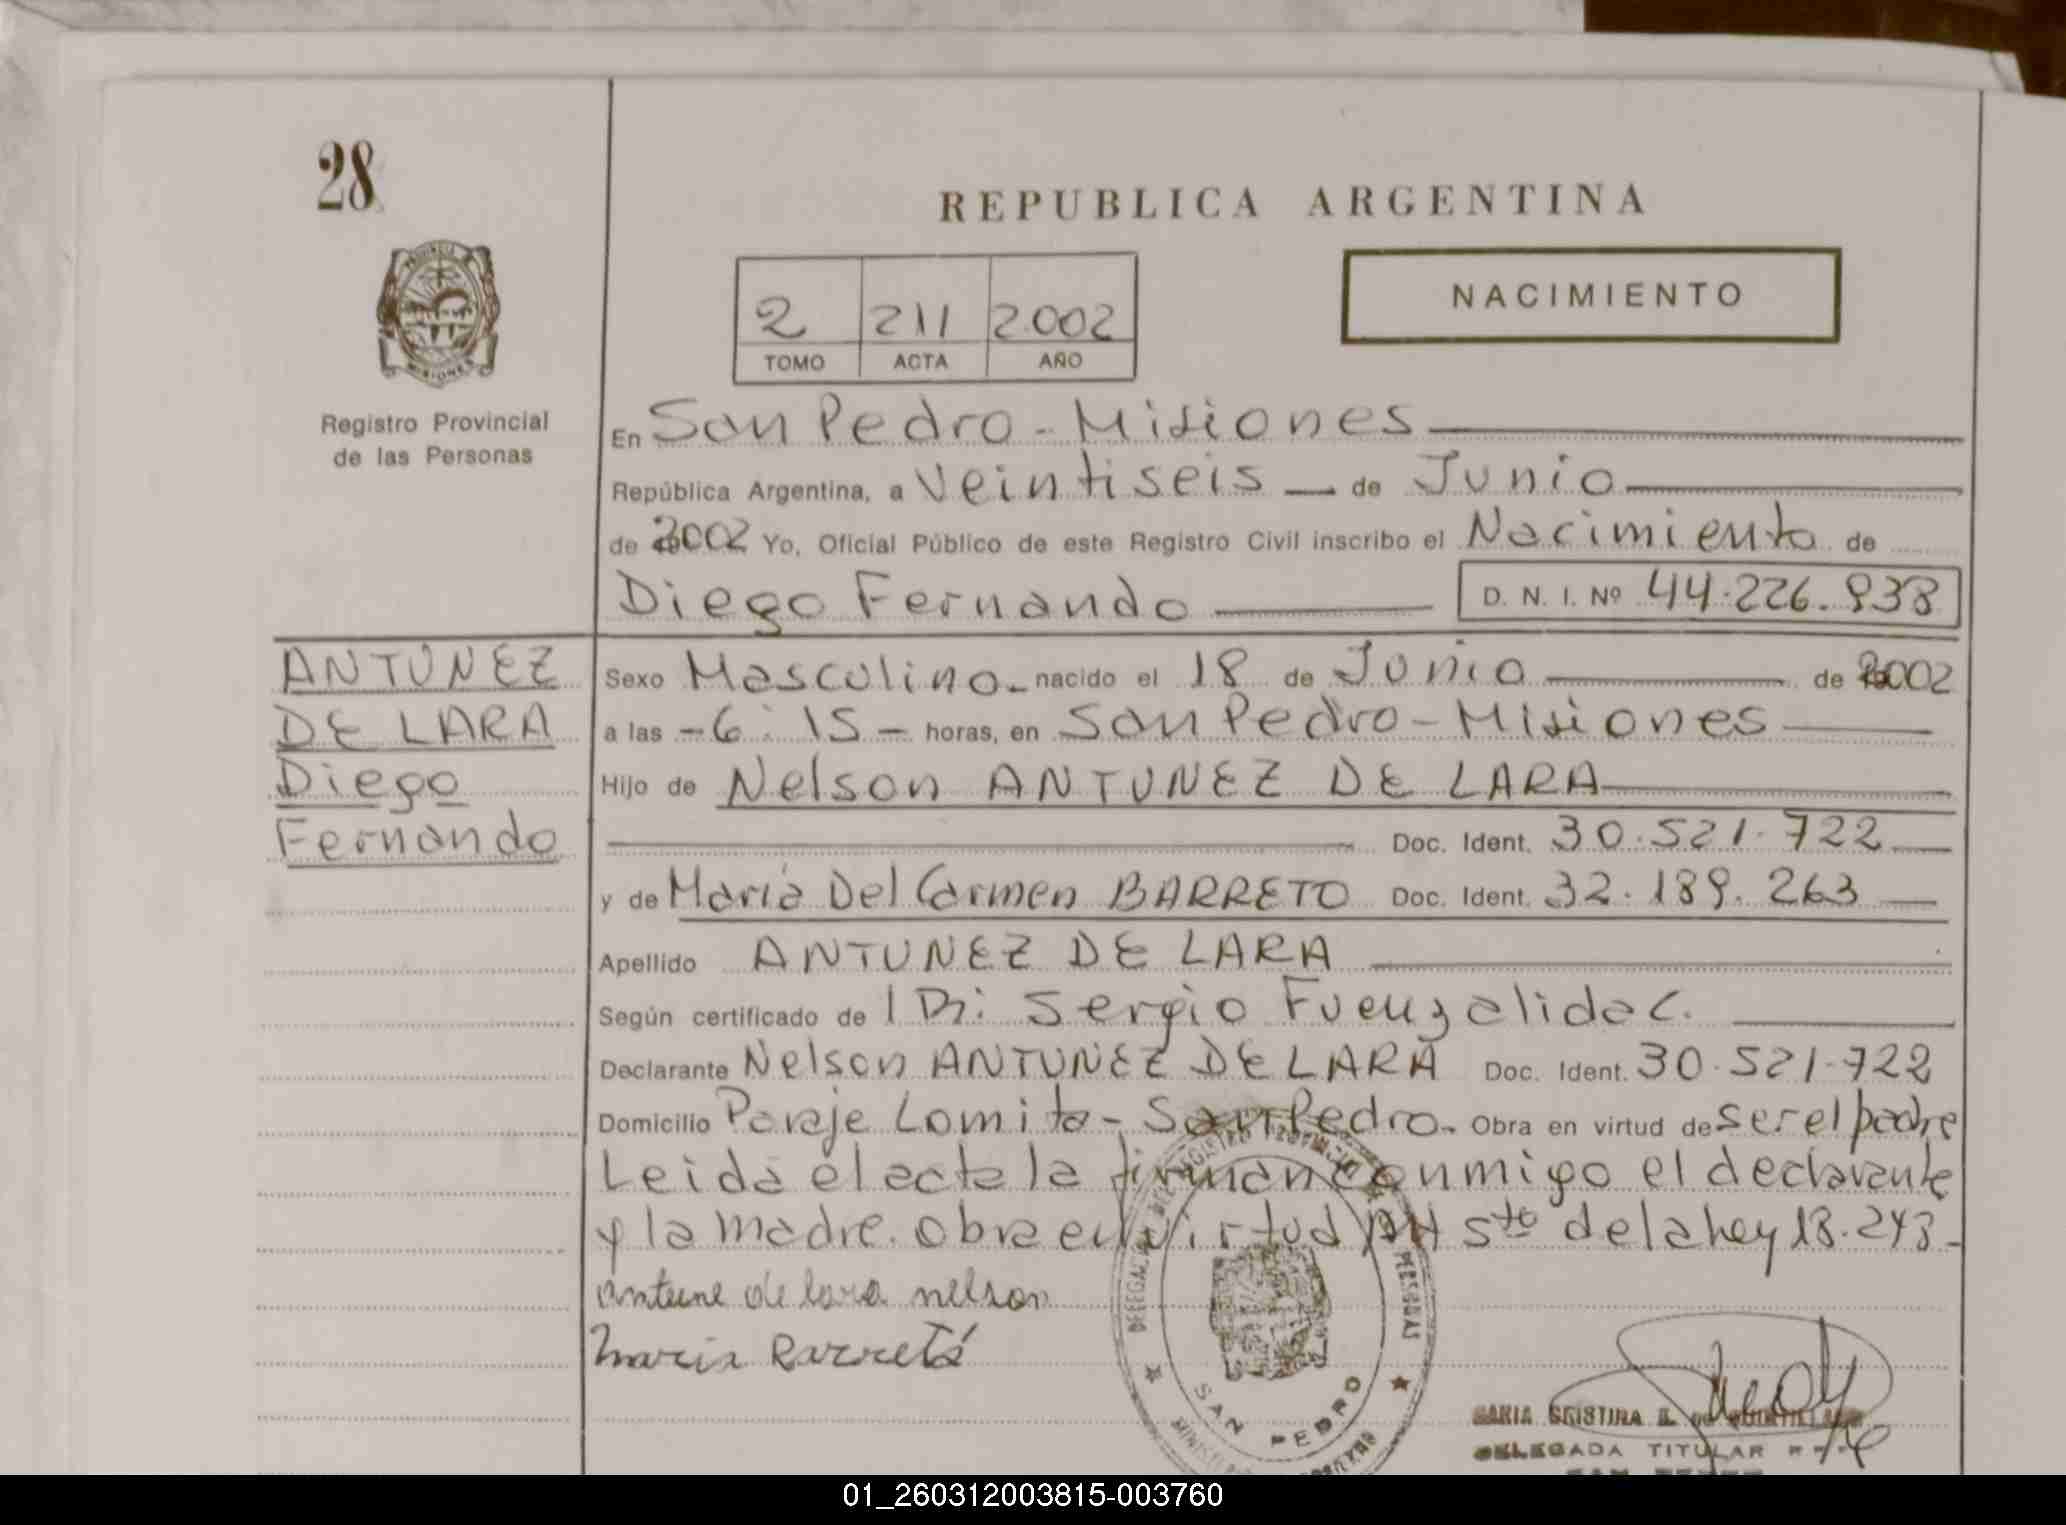 28
REPUBLICA ARGENTINA
NACIMIENTO
2 211 2002
TOMO ACTA AÑO
PROVINCIA DE MISIONES
Registro Provincial
de las Personas
En San Pedro - Misiones
República Argentina, a Veintiseis — de Junio
de 2002 Yo, Oficial Público de este Registro Civil inscribo el Nacimiento de
Diego Fernando D. N. I. Nº 44.226.938
ANTUNEZ
DE LARA
Diego
Fernando
Sexo Masculino - nacido el 18 de Junio de 2002
a las - 6 : 15 - horas, en San Pedro - Misiones
Hijo de Nelson ANTUNEZ DE LARA
Doc. Ident. 30.521.722
y de Maria Del Carmen BARRETO Doc. Ident. 32.189.263
Apellido ANTUNEZ DE LARA
Según certificado de Dr: Sergio Fuenzalida C.
Declarante Nelson ANTUNEZ DE LARA Doc. Ident. 30.521.722
Domicilio Paraje Lomita - San Pedro. Obra en virtud de ser el padre
Leida el acta la firman conmigo el declarante
y la madre. obra en virtud Art 5to de la ley 18.248 -
antune de lara nelson
maria Barreto
DELEGACION DEL REGISTRO PROVINCIAL DE LAS PERSONAS
SAN PEDRO
MARIA CRISTINA
DELEGADA TITULAR
01_260312003815-003760